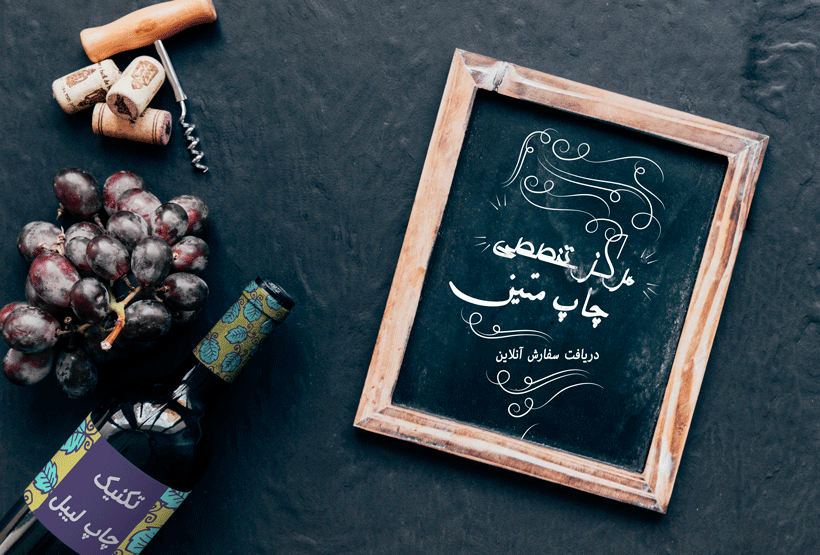 مرکز تخصصی
چاپ متین
دریافت سفارش آنلاین
تکنیک
چاپ لیبل